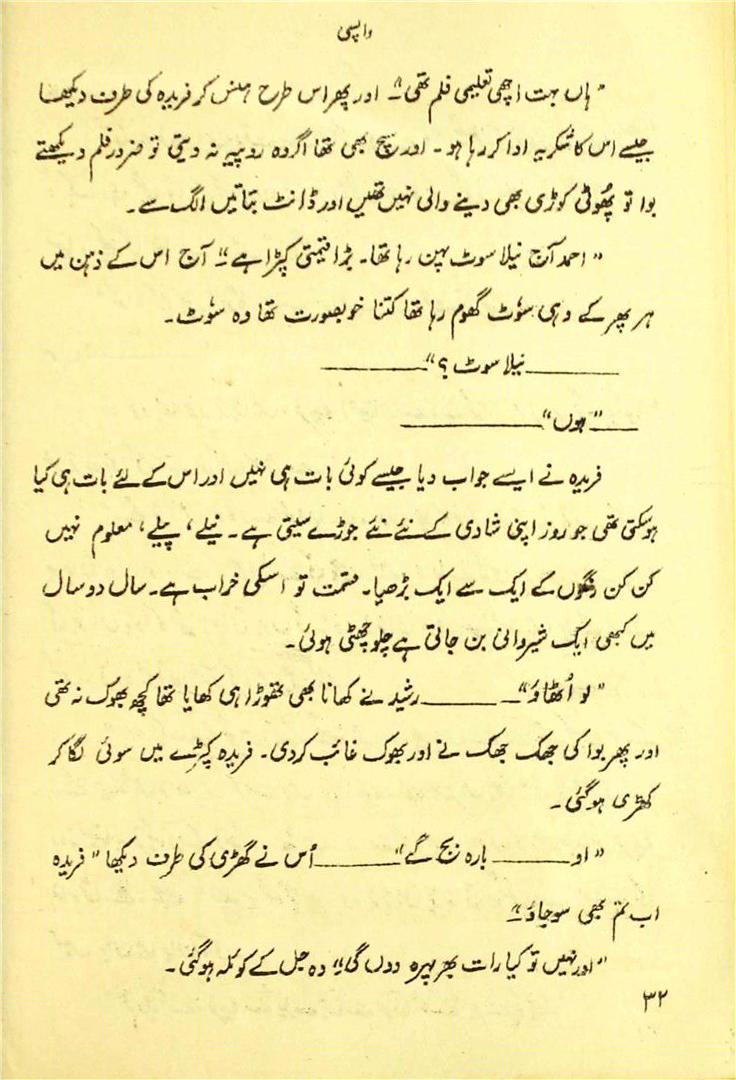 واپسی
"ہاں بہت اچھی تعلیمی فلم تھی"۔ اور پھر اس طرح ہنس کر فریدہ کی طرف دیکھا
جیسے اس کا شکریہ ادا کر رہا ہو۔ اور سچ بھی تھا اگر وہ روپیہ نہ دیتی تو ضرور فلم دیکھتے
بوا تو پھُوٹی کوڑی بھی دینے والی نہیں تھیں اور ڈانٹ بتاتیں الگ سے۔
"احمد آج نیلا سوٹ پہن رہا تھا۔ بڑا قیمتی کپڑا ہے"۔ آج اس کے ذہن میں
ہر پھر کے وہی سُوٹ گھوم رہا تھا کتنا خوبصورت تھا وہ سُوٹ۔
ــــــــ نیلا سوٹ؟" ــــــــ
ــــ "ہوں" ــــــــ
فریدہ نے ایسے جواب دیا جیسے کوئی بات ہی نہیں اور اس کے لئے بات ہی کیا
ہوسکتی تھی جو روز اپنی شادی کے نئے نئے جوڑے سیتی ہے۔ نیلے، پیلے، معلوم نہیں
کن کن رنگوں کے ایک سے ایک بڑھیا۔ قسمت تو اسکی خراب ہے۔ سال دو سال
میں کبھی ایک شیروانی بن جاتی ہے چلو چھٹی ہوئی۔
"لو اُٹھاؤ" ــــــــ رشید نے کھانا بھی تھوڑا ہی کھایا تھا کچھ بھوک نہ تھی
اور پھر بوا کی جھک جھک نے اور بھوک غائب کردی۔ فریدہ کپڑے میں سوئی لگا کر
کھڑی ہوگئی۔
"او ــــــــ بارہ بج گے" ــــــــ اُس نے گھڑی کی طرف دیکھا "فریدہ
اب تم بھی سوجاؤ"۔
"اور نہیں تو کیا رات بھر پہرہ دوں گی"۔ وہ جل کے کوئلہ ہوگئی۔
۳۲